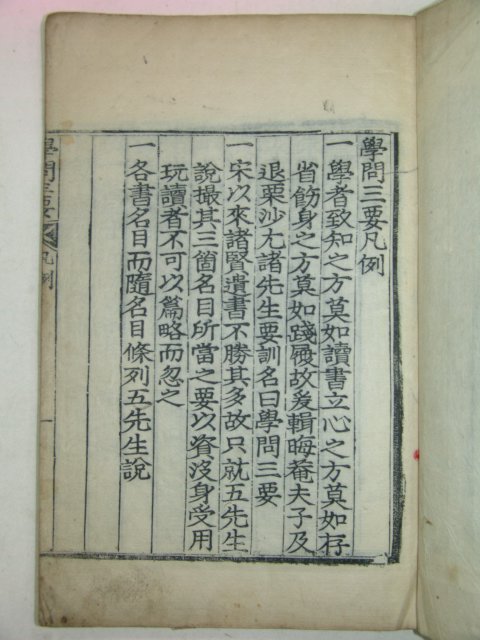 學問三要凡例
一學者致知之方莫如讀書立心之方莫如存
省飭身之方莫如踐履故爰輯晦菴夫子及
退栗沙尢諸先生要訓名曰學問三要
一宋以來諸賢遺書不勝其多故只就五先生
說撮其三箇名目所當之要以資沒身受用
玩讀者不可以篇略而忽之
一各書名目而隨名目條列五先生說
學問三要 凡例 一